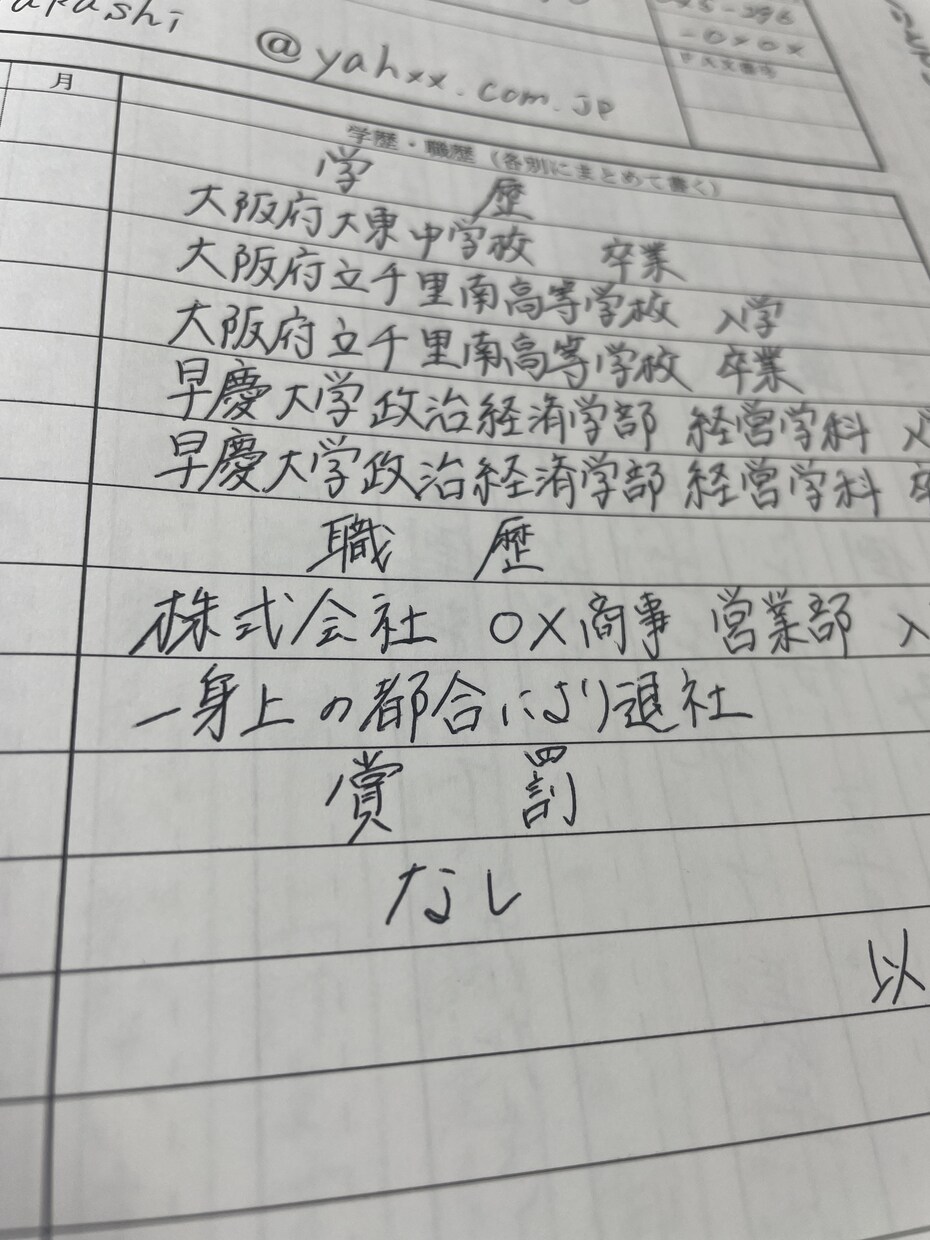 @yahxx.com.jp
月
学歴・職歴(各別にまとめて書く)
学 歴
大阪府大東中学校 卒業
大阪府立千里南高等学校 入学
大阪府立千里南高等学校 卒業
早慶大学政治経済学部 経営学科 入学
早慶大学政治経済学部 経営学科 卒
職 歴
株式会社 ○×商事 営業部 入
一身上の都合により退社
賞 罰
なし
以